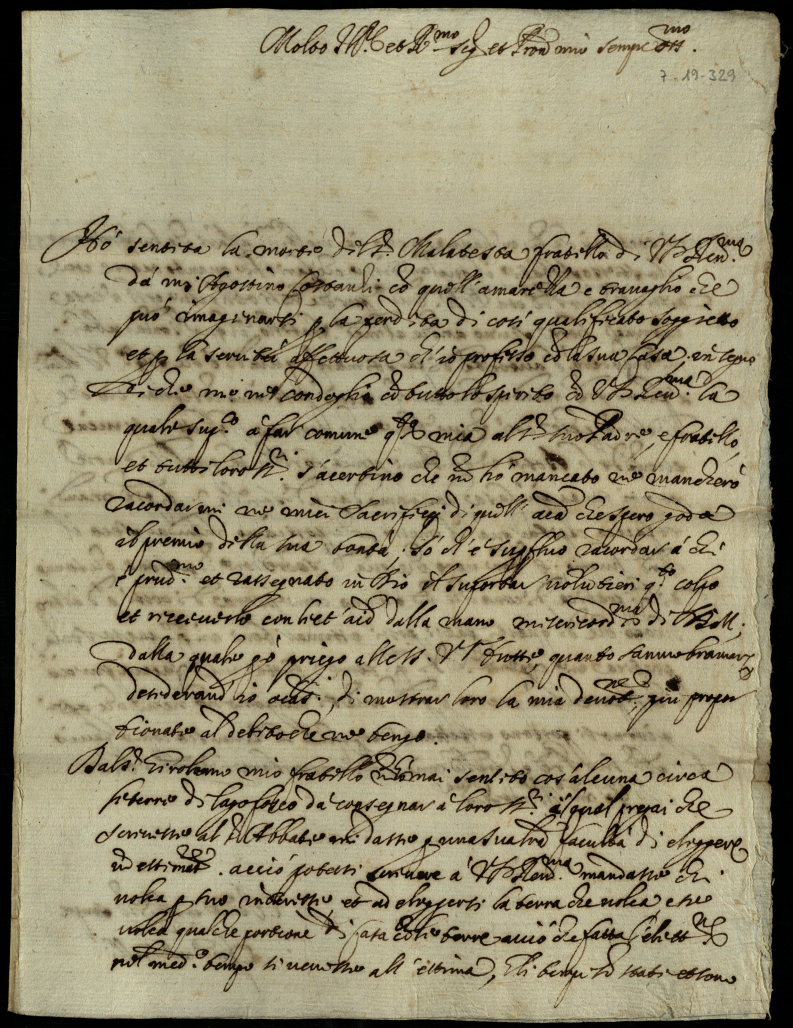 Molto Ill.re et R.mo sig.r et Pron mio sempre oss.mo
7-19-329
Hò sentita la morte del S.r Malatesta fratello di V.S. Reu.ma
da mr Agostino con quell'amarezza e trauaglio che
può imaginarsi p la perdita di così qualificato soggetto
et p la seruitù affettuosa ch'io professo con la sua Casa. in segno
di che me ne condoglio con tutto lo spirito con V.S. Reu.ma la
quale sup.co à far comune q.to mia al S.r suo Padre, e fratello,
et tutti loro SS.ri s'acertino che nõ hò mancato ne mancherò
racordarmi ne miei Sacrifici di quell' che spero goda
il premio della sua bontà. Sò ch'è supfluo racordar à chi
è prud.mo et rassegnato in Dio il suportar uolentieri q.to colpo
et riceuerlo con liet' dalla mano misericord.ma di
dalla quale pò priego alle SS. VV. tutte, quanto sanno bramare
desiderand'io occ.ni di mostrar loro la mia deuot.ne più propor
tionate al debito che ne tengo.
Dal S.r Girolamo mio fratello nõ hò mai sentito cos'alcuna circa
le terre di da consegnar à loro SS.ri al qual pregai che
scriuesse al S.r Abbate mi dasse p una sua facultà di eleggere
un acciò potessi scriuere à V.S. Reu.ma mandasse chi
uolea p suo interesse et ad eleggersi la terra che uolea e se
uolea qualche portione di casa con le terre acciò che fatta l'elett.ne
nel med.o tempo si uenisse all'estima, li tempi sõ stati